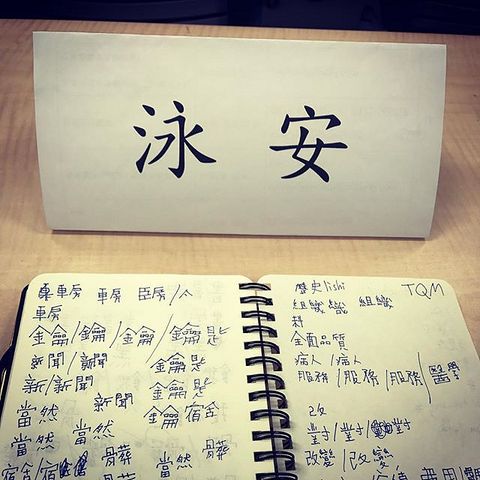 泳安
車房 車房 臣房/人
車房
金龠/鑰/金龠/鑰匙
新聞/新聞 金龠匙
新/新聞 鑰匙
當然 新聞 金龠宿舍
當然 當然
骨葬 當然 骨葬
宿舍/宿
歷史lishi TQM
組織 織 組織
全面品質
病人/病人
服務/服務/服務/醫學
改
對/對/對
改變/改變